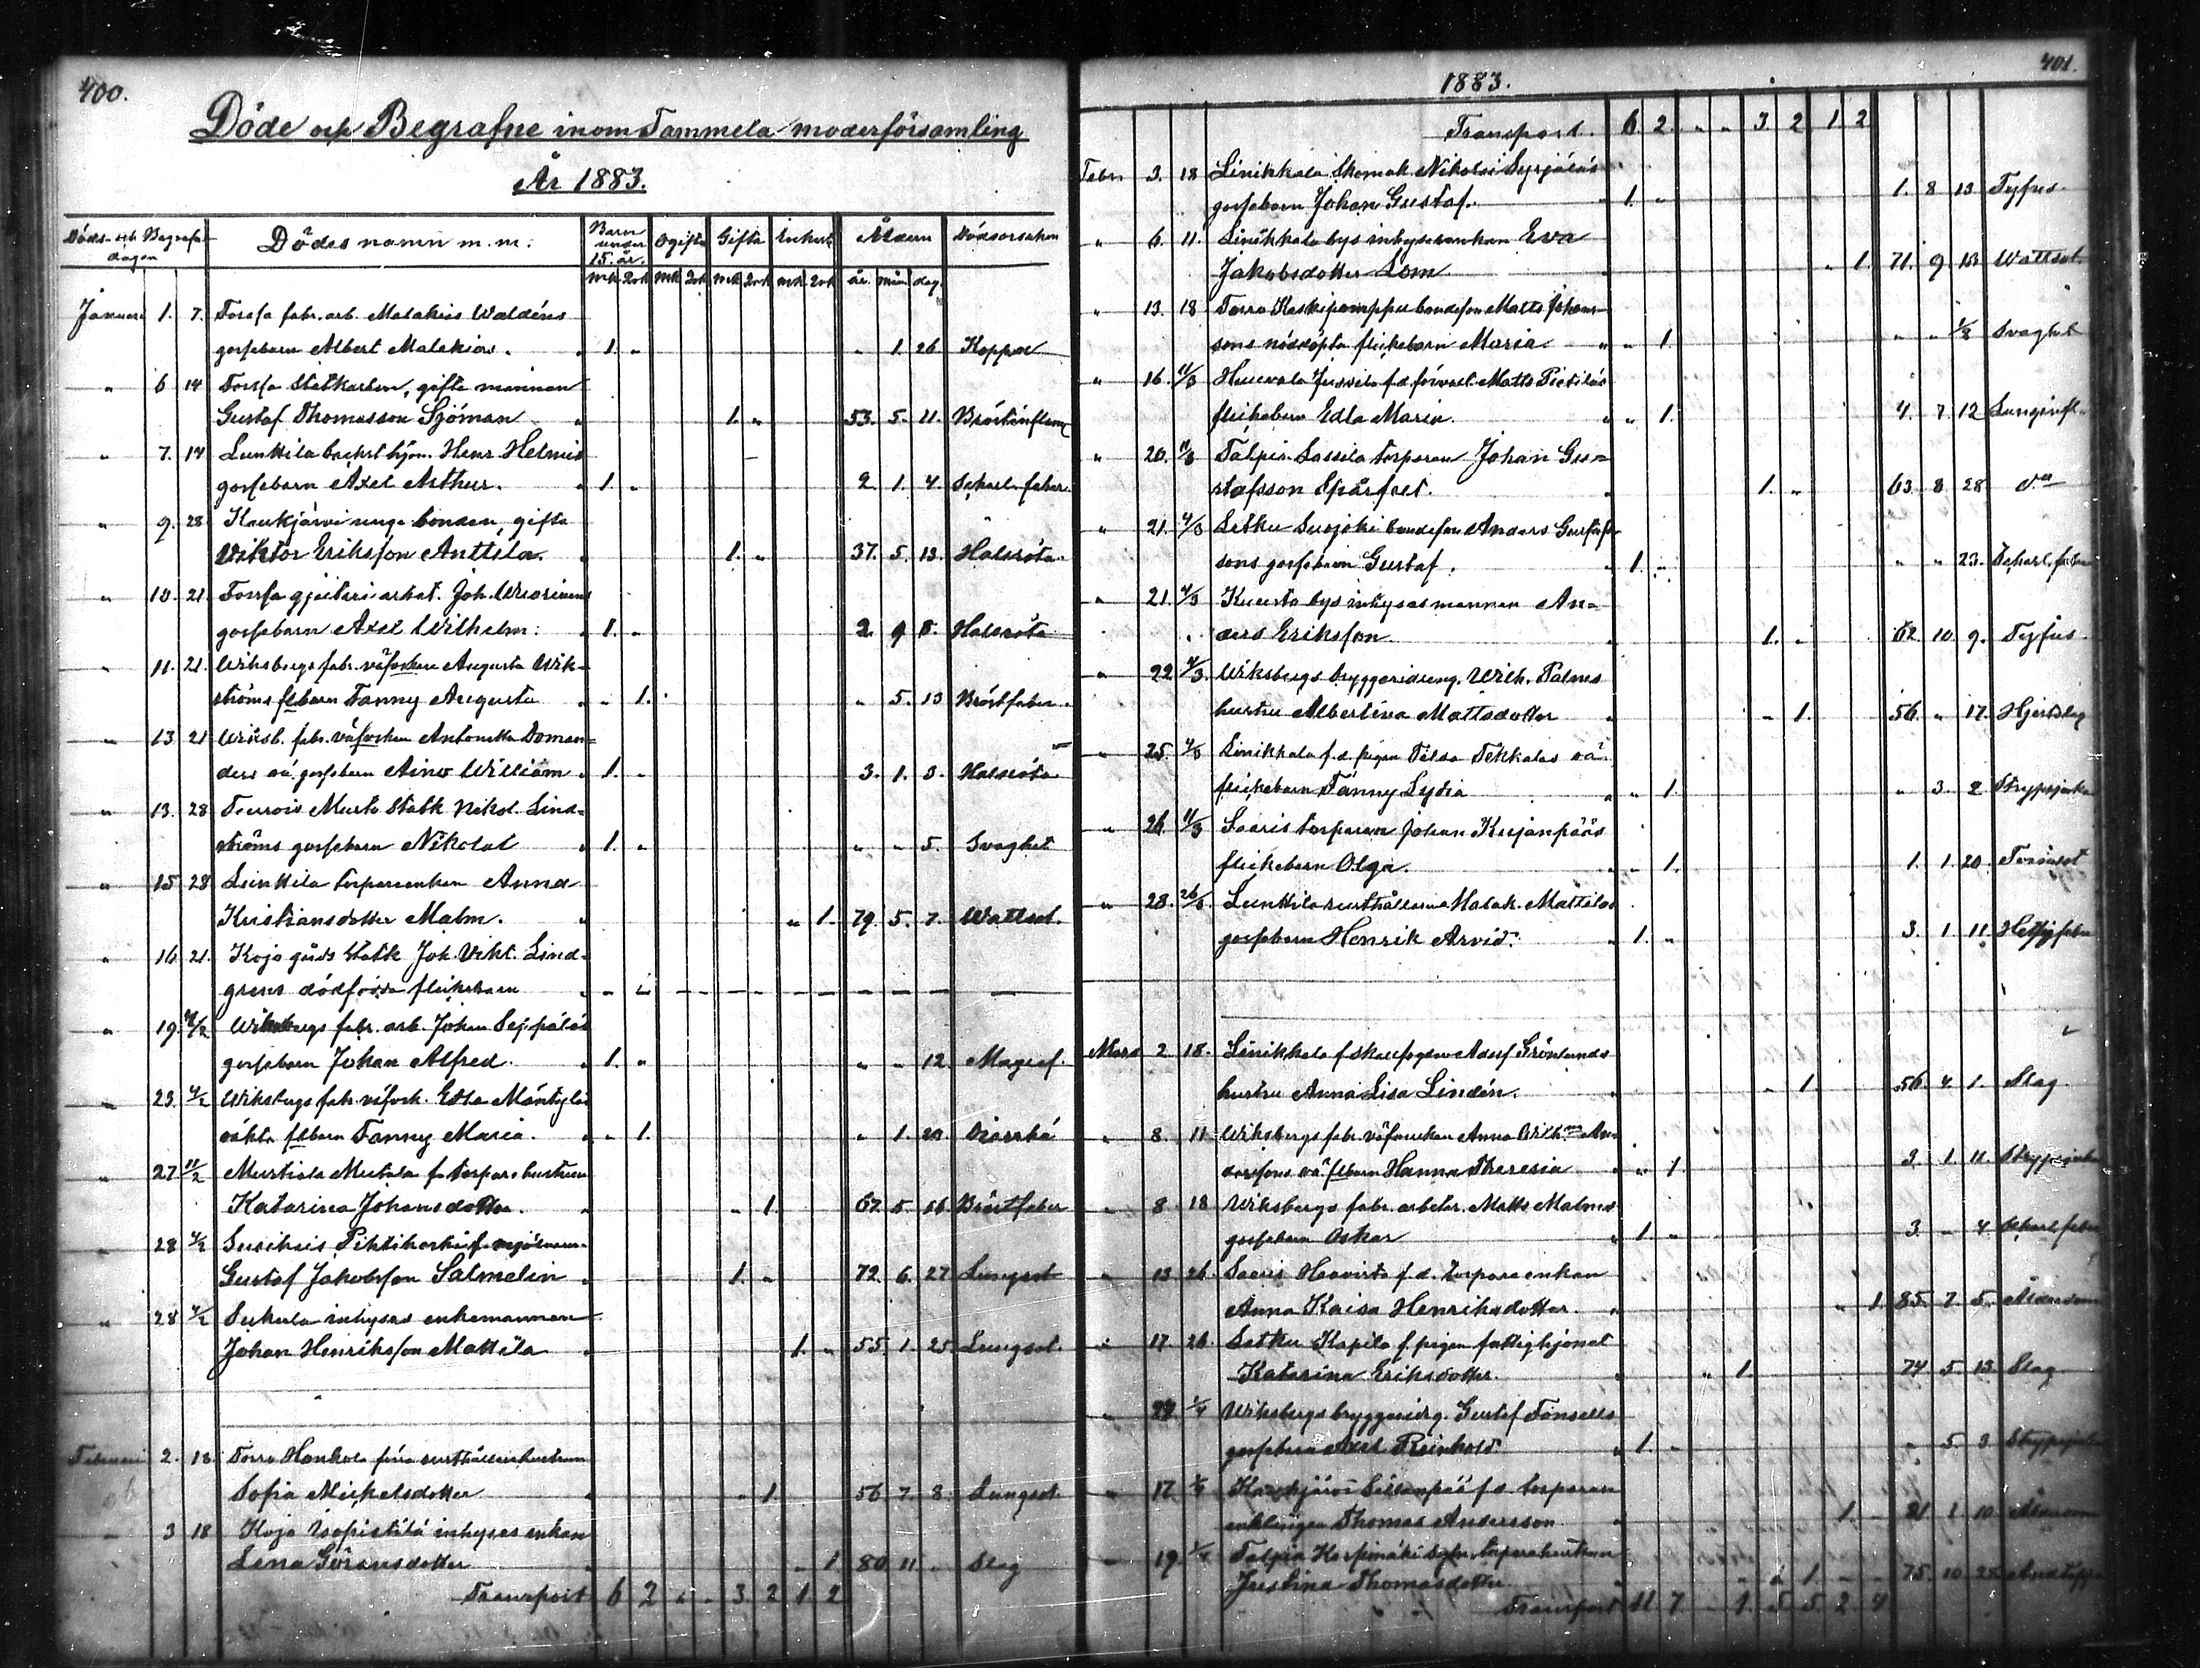 400.
Döde och Begrafne inom Tammela moderförsamling
År 1883.
Döds- och Begrafn. dagen Dödes namn m.m. Barn under 15. år. Ogifta Gifta Enkest. Åldern Dödsorsaken
mk. Qvk mk Qvk mk Qvk mk. Qvk. år. mån. dag.
Januari 1. 7. Forssa fabr. arb. Malakias Waldéns
gossebarn Albert Malakias. 1. " " 1. 26 Koppor
" 6 14 Forssa Statkarlen, gifta mannen
Gustaf Thomasson Sjöman 1. " 53. 5. 11. Bröstinflam
" 7. 14 Lunkila backst. hjon. Henr. Helmis
gossebarn Axel Arthur. 1. " 2. 1. 4. Scharl. feber.
" 9. 28 Kaukjärvi unga bonden, gifta
Wiktor Eriksson Anttila. 1. " 37. 5. 13. Halsröta.
" 10. 21. Forssa gjuteri arbet. Joh.
gossebarn Axel Wilhelm. 1. " 2. 9. 8. Halsröta
" 11. 21. Wiksbergs fabr. väfverskan Augusta Wik-
ströms flbarn Fanny Augusta " 1. " 5. 13 Bröstfeber.
" 13 21 Wiksb. fabr. väfverskan Antonetta Doman-
ders oä. gossebarn Aino William 1. " 3. 1. 3. Halsröta
" 13. 28 Teuro Musta Statk Nikol. Lind-
ströms gossebarn Nikolai 1. " " " 5. Svaghet
" 15 28 Lunkila torpareenkan Anna
Kristiansdotter Malm. " 1. 79. 5. 7. Wattsot.
" 16 21. Kojo gårds Statk Joh. Vikt. Lind-
grens dödfödda flickebarn
" 19. 4/2 Wiksbergs fabr. arb. Johan Seppäläs
gossebarn Johan Alfred. 1. " " " 12. Magsef.
" 23. 4/2 Wiksbergs fabr. väfversk. Edla Mäntyläs
oäkta flbarn Fanny Maria. " 1. " 1. 20. Diarrhé
" 27 11/2 Mustiala Mustala f. torpare hustrun
Katarina Johansdotter. " 1. 67. 5. 16. Bröstfeber
" 28 4/2 Susikais Pihtikorki f.
Gustaf Jakobsson Salmelin 1. " 72. 6. 27 Lungsot
" 28 4/2 Sukula inhyses enkemannen
Johan Henriksson Mattila 1. " 55. 1. 25. Lungsot.
Februari 2. 18 Torro Hankola förra rusthållarehustrun
Sofia Mickelsdotter " 1. 56. 7. 8. Lungsot
" 3 18 Kojo Isopietilä inhyses enkan
Lena Göransdotter " 1. 80 11 " Slag
Transport 6 2 " " 3. 2 1. 2
401.
1883.
Transport. 6. 2. " " 3. 2 1. 2
Febr. 3. 18 Linikkala Skomak Nikolai Syrjäläs
gossebarn Johan Gustaf. 1. " 1. 8 13 Tyfus
" 6. 11. Linikkala bys inhysesenkan Eva
Jakobsdotter Lom. " 1. 71. 9 13 Wattsot.
" 13. 18 Torro Koskipamppu bondeson Matts Johans-
sons nöddöpta flickebarn Maria " 1. " " 1/2 Svaghet
" 16. 11/3 Huuvola f.d. Matts Pietiläs
flickebarn Edla Maria. " 1. 4. 7. 12 Lunginfl.
" 20. Talpia Lassila torparen Johan Gu-
stafsson Spårfeet. 1. " 63. 8 28
" 21. 4/3 Letku Suojoki bondeson Anders Gustafs-
sons gossebarn Gustaf. 1. " " " 23. Scharl. feber
" 21. 4/3 Kuusto bys inhyses mannen An-
ders Eriksson. 1. " 62. 10. 9. Tyfus.
" 22 4/3. Wiksbergs bryggeridreng. Wilh. Palms
hustru Albertina Mattsdotter " 1. 56. " 17. Hjertslag
" 25. 4/3 Linikkala f.d. pigan Tilda Tekkalas oä.
flickebarn Fanny Lydia " 1. " 3. 2 Strypsjuka
" 26. 11/3 Saaris torparen Johan Kujanpääs
flickebarn Olga. " 1. 1. 1. 20. Torrvärk
" 28. Lunkila rusthållarens Malak. Mattilas
gossebarn Henrik Arvid. 1. " 3. 1 11
Mars 2 18. Linikkala f. skallfogden Adolf Grönlunds
hustru Anna Lisa Lindén. " 1. 56. 4. 1. Slag
" 8. 11. Wiksbergs fabr. väfverskan Anna Wilh. An-
derssons oä flbarn Hanna Theresia " 1. 3. 1. 11. Strypsjuka
" 8 18 Wiksbergs fabr. arbetar. Matts Malms
gossebarn Oskar 1. " 3. " 4 Scharl. feber
" 13 26. Saaris Haavisto f.d. torpareenkan
Anna Kaisa Henriksdotter. " 1. 85. 7 5.
" 17. 26. Letku Kapila f. pigan fattighjonet
Katarina Eriksdotter. " 1. 74 5 13. Slag
" 1/4 Wiksbergs bryggeridrg. Gustaf Fonsells
gossebarn Axel Reinhold 1. " " 5. 3. Strypsjuka
" 17. Kaukjärvi Sillanpää f.d. torparen
enklingen Thomas Andersson 1. " 1 10
" 19. 1/4 Talpia Korpimäki torparehustrun
Justina Thomasdotter 1. 75. 10. 28
Transport 11 7. " 1. 5. 5. 2. 4